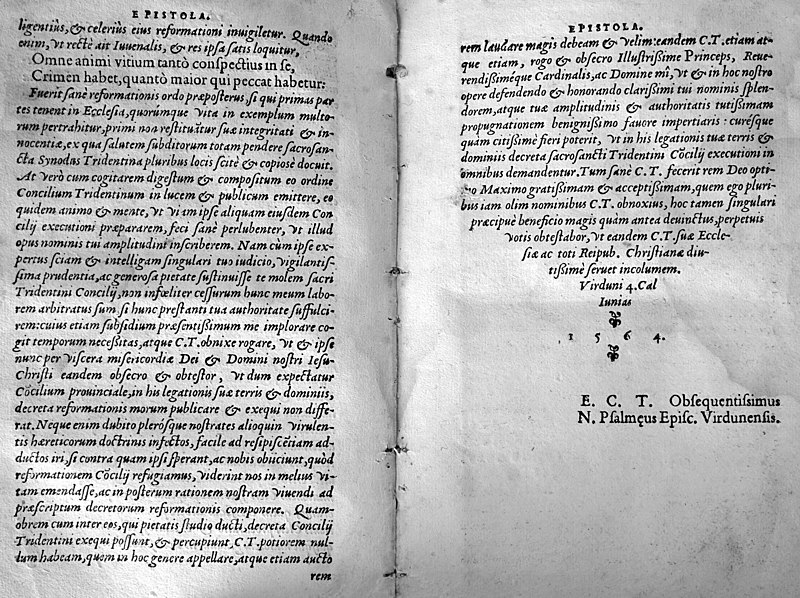 EPISTOLA.
ligentiùs, & celeriùs eius reformationi inuigiletur. Quando
enim, vt rectè ait Iuuenalis, & res ipsa satis loquitur,
Omne animi vitium tantò conspectius in se,
Crimen habet, quantò maior qui peccat habetur:
Fuerit sanè reformationis ordo præposterus, si qui primas par
tes tenent in Ecclesia, quorúmque vita in exemplum multo-
rum pertrahitur, primi non restituātur suæ integritati & in-
nocentiæ, ex qua salutem subditorum totam pendere sacrosan-
cta Synodus Tridentina pluribus locis scitè & copiosè docuit.
At verò cum cogitarem digestum & compositum eo ordine
Concilium Tridentinum in lucem & publicum emittere, eo
quidem animo & mente, vt viam ipse aliquam eiusdem Con
cilij executioni præpararem, feci sanè perlubenter, vt illud
opus nominis tui amplitudini inscriberem. Nam cùm ipse ex-
pertus sciam & intelligam singulari tuo iudicio, vigilantis-
sima prudentia, ac generosa pietate sustinuisse te molem sacri
Tridentini Concilij, non infœliciter cessurum hunc meum labo-
rem arbitratus sum, si hunc prestanti tua authoritate suffulci-
rem: cuius etiam subsidium præsentissimum me implorare co-
git temporum necessitas, atque C.T. obnixe rogare, vt & ipse
nunc per viscera misericordiæ Dei & Domini nostri Iesu-
Christi eandem obsecro & obtestor, vt dum expectatur
Cōcilium prouinciale, in his legationis suæ terris & dominiis,
decreta reformationis morum publicare & exequi non diffe-
rat. Neque enim dubito plerósque nostrates alioquin virulen-
tis hæreticorum doctrinis infectos, facile ad resipiscētiam ad-
ductos iri, si contra quam ipsi sperant, ac nobis obiiciunt, quòd
reformationem Cōcilij refugiamus, viderint nos in melius vi-
tam emendasse, ac in posterum rationem nostram viuendi ad
præscriptum decretorum reformationis componere. Quam-
obrem cum inter eos, qui pietatis studio ducti, decreta Concilij
Tridentini exequi possunt, & percupiunt, C.T. potiorem nul-
lum habeam, quem in hoc genere appellare, atque etiam aucto
rem
EPISTOLA.
rem laudare magis debeam & velim: eandem C.T. etiam at-
que etiam, rogo & obsecro Illustrissime Princeps, Reue-
rendissiméque Cardinalis, ac Domine mî, vt & in hoc nostro
opere defendendo & honorando clarissimi tui nominis splen-
dorem, atque tuæ amplitudinis & authoritatis tutissimam
propugnationem benignissimo fauore impertiaris: curésque
quàm citissimè fieri poterit, vt in his legationis tuæ terris &
dominiis decreta sacrosancti Tridentini Cōcilij executioni in
omnibus demandentur. Tum sanè C.T. fecerit rem Deo opti-
mo Maximo gratissimam & acceptissimam, quem ego pluri-
bus iam olim nominibus C.T. obnoxius, hoc tamen singulari
præcipuè beneficio magis quàm antea deuinctus, perpetuis
votis obtestabor, vt eandem C.T. suæ Eccle-
siæ ac toti Reipub. Christianæ diu-
tissimè seruet incolumem.
Virduni 4. Cal
Iunias
1 5 6 4.
E. C. T. Obsequentissimus
N. Psalmęus Episc. Virdunensis.